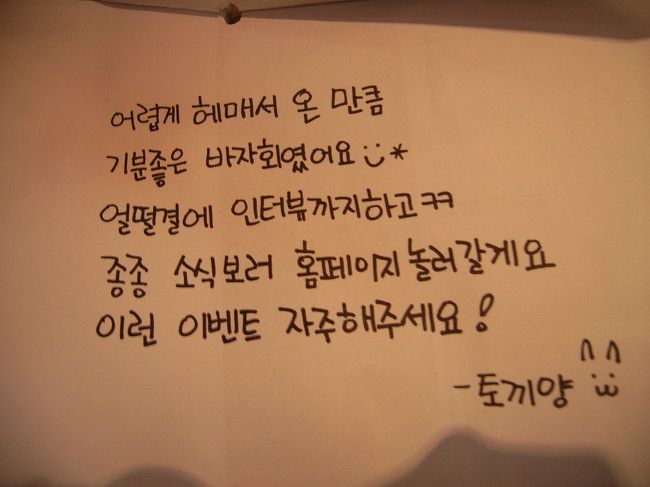 어렵게 헤매서 온 만큼
기분좋은 바자회였어요 :)*
얼떨결에 인터뷰까지하고ㅋㅋ
종종 소식보러 홈페이지놀러갈게요
이런 이벤트 자주해주세요!
-토끼양